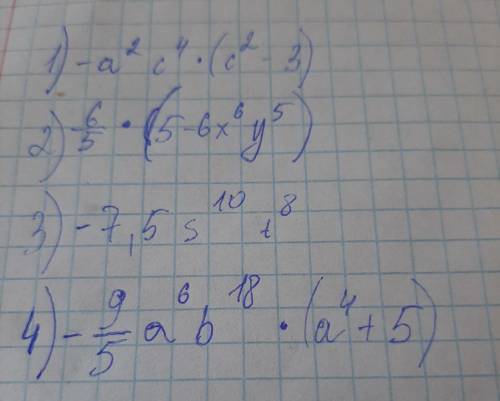 1) -a² c⁴ · (c² - 3)
2) -6/5 · (5-6x⁶y⁵)
3) -7,5 s¹⁰ t⁸
4) -9/5 a⁶b¹⁸ · (a⁴+5)